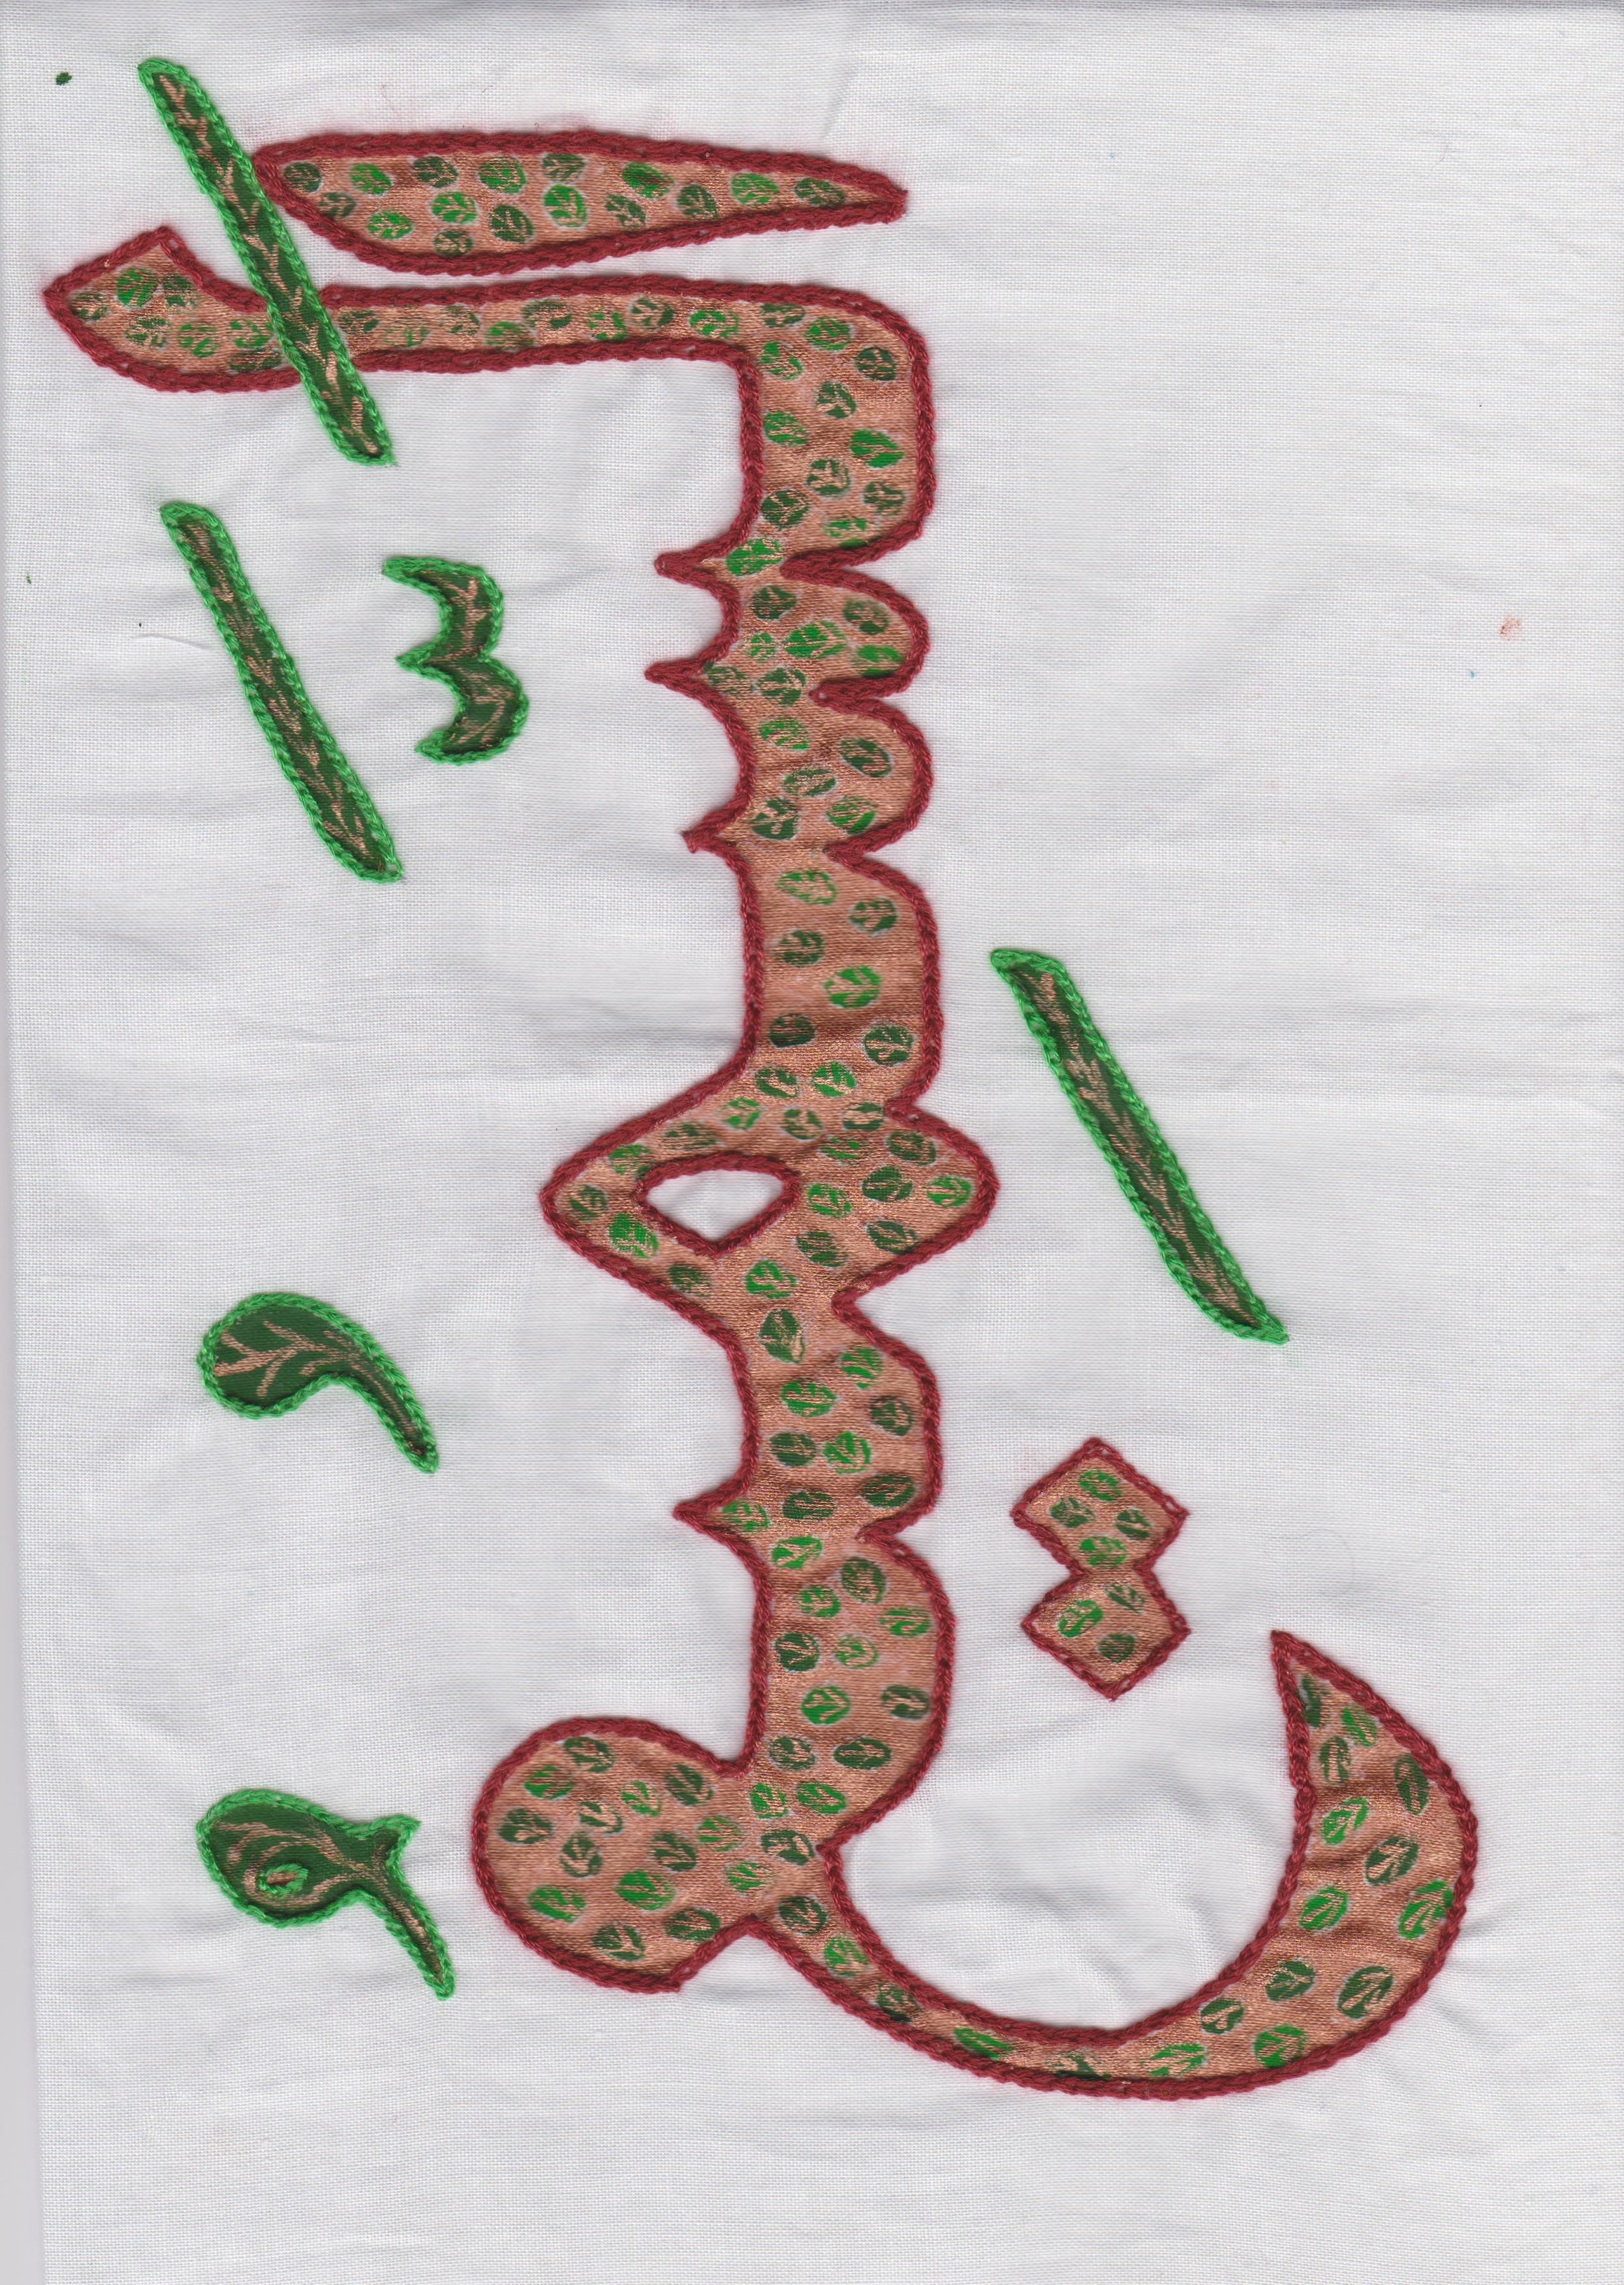 اَلسَّمِيْعُ